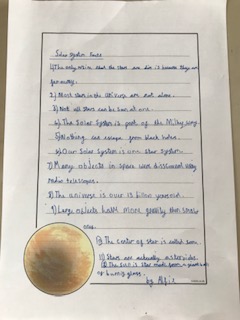 Solar System Facts
1) The only reson that the stars are dim is because they are
far away.
2.) Most stars in the Universe are not alone.
3) Not all stars can be seen at one.
4) The Solar System is part of the Milky way
5) Nothing can escape from black holes.
6) Our Solar System is one Star System.
7) Many objects in space were discoverd using
radio telescopes.
8) The universe is over 13 billion years old.
9) Large objects have more gravity than smaller
ones.
10) The center of star is called core.
11) Stars are actually
12) The Sun is
burning
by Alfie